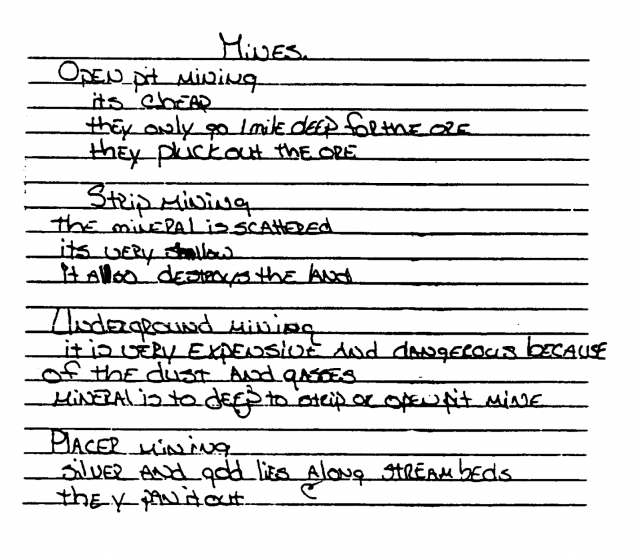 Mines.
Open pit mining
its cheap
they only go 1 mile deep for the ore
they pluck out the ore
Strip mining
the mineral is scattered
its very shallow
it also destroys the land
Underground mining
it is very expensive and dangerous because
of the dust and gasses
mineral is to deep to strip or open pit mine
Placer mining
silver and gold lies along stream beds
they pan it out